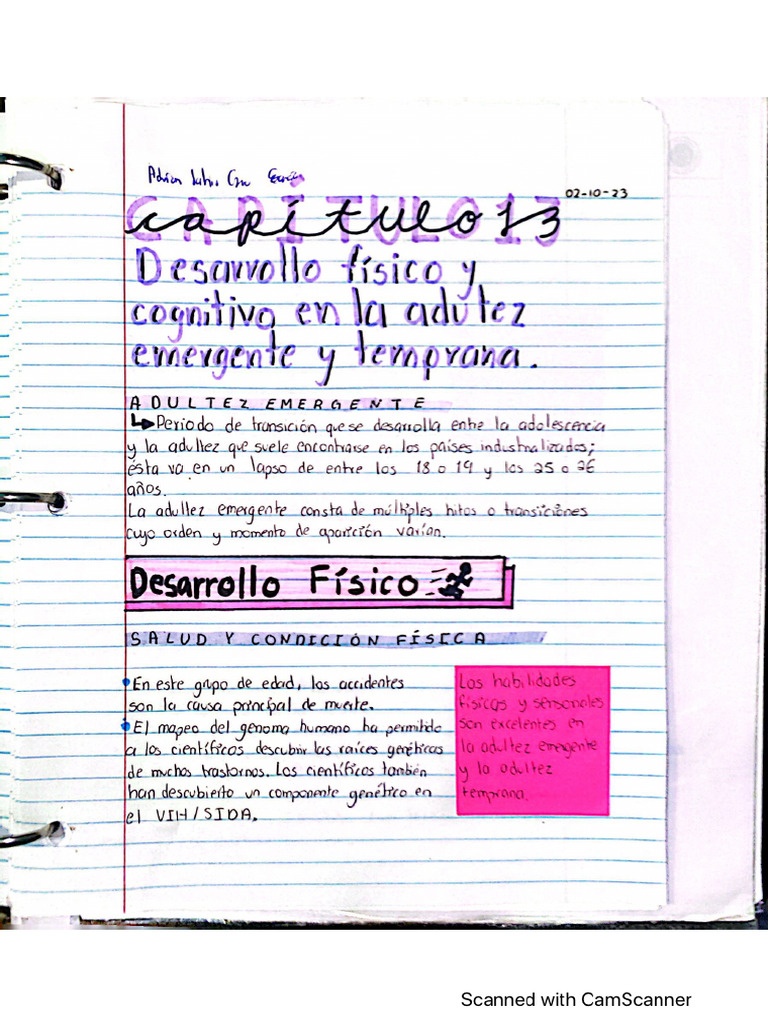 Adrian
02-10-23
CAPÍTULO 13
capítulo 13
Desarrollo físico y
cognitivo en la adultez
emergente y temprana.
ADULTEZ EMERGENTE
Periodo de transición que se desarrolla entre la adolescencia
y la adultez que suele encontrarse en los países industrializados;
ésta va en un lapso de entre los 18 o 19 y los 25 o 26
años.
La adultez emergente consta de múltiples hitos o transiciones
cuyo orden y momento de aparición varían.
Desarrollo Físico
SALUD Y CONDICIÓN FÍSICA
En este grupo de edad, los accidentes
son la causa principal de muerte.
El mapeo del genoma humano ha permitido
a los científicos descubrir las raíces genéticas
de muchos trastornos. Los científicos también
han descubierto un componente genético en
el VIH/SIDA.
Las habilidades
físicas y sensoriales
son excelentes en
la adultez emergente
y la adultez
temprana.
Scanned with CamScanner